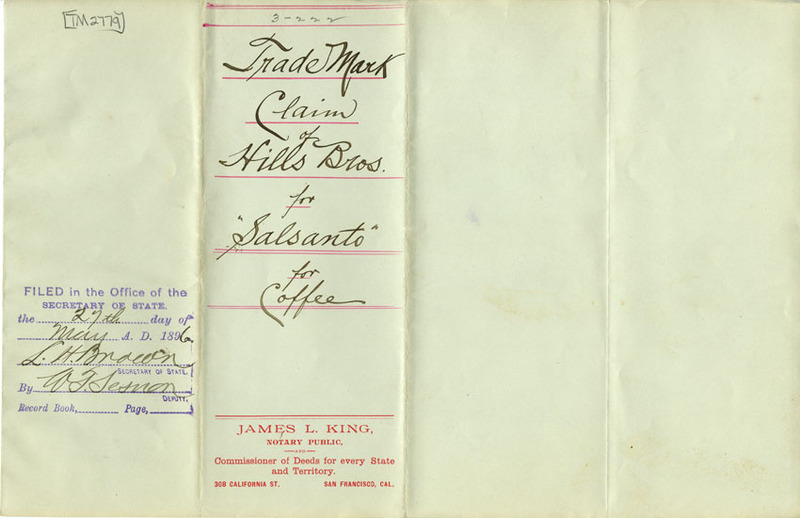 [TM2779]
FILED in the Office of the
SECRETARY OF STATE.
the 27th day of
May A. D. 1896
L. H. Brown
SECRETARY OF STATE.
By W. T. Sesnon
DEPUTY.
Record Book, Page,
3-222
Trade Mark
Claim
of
Hills Bros.
for
"Salsanto"
for
Coffee
JAMES L. KING,
NOTARY PUBLIC,
AND
Commissioner of Deeds for every State
and Territory.
308 CALIFORNIA ST. SAN FRANCISCO, CAL.